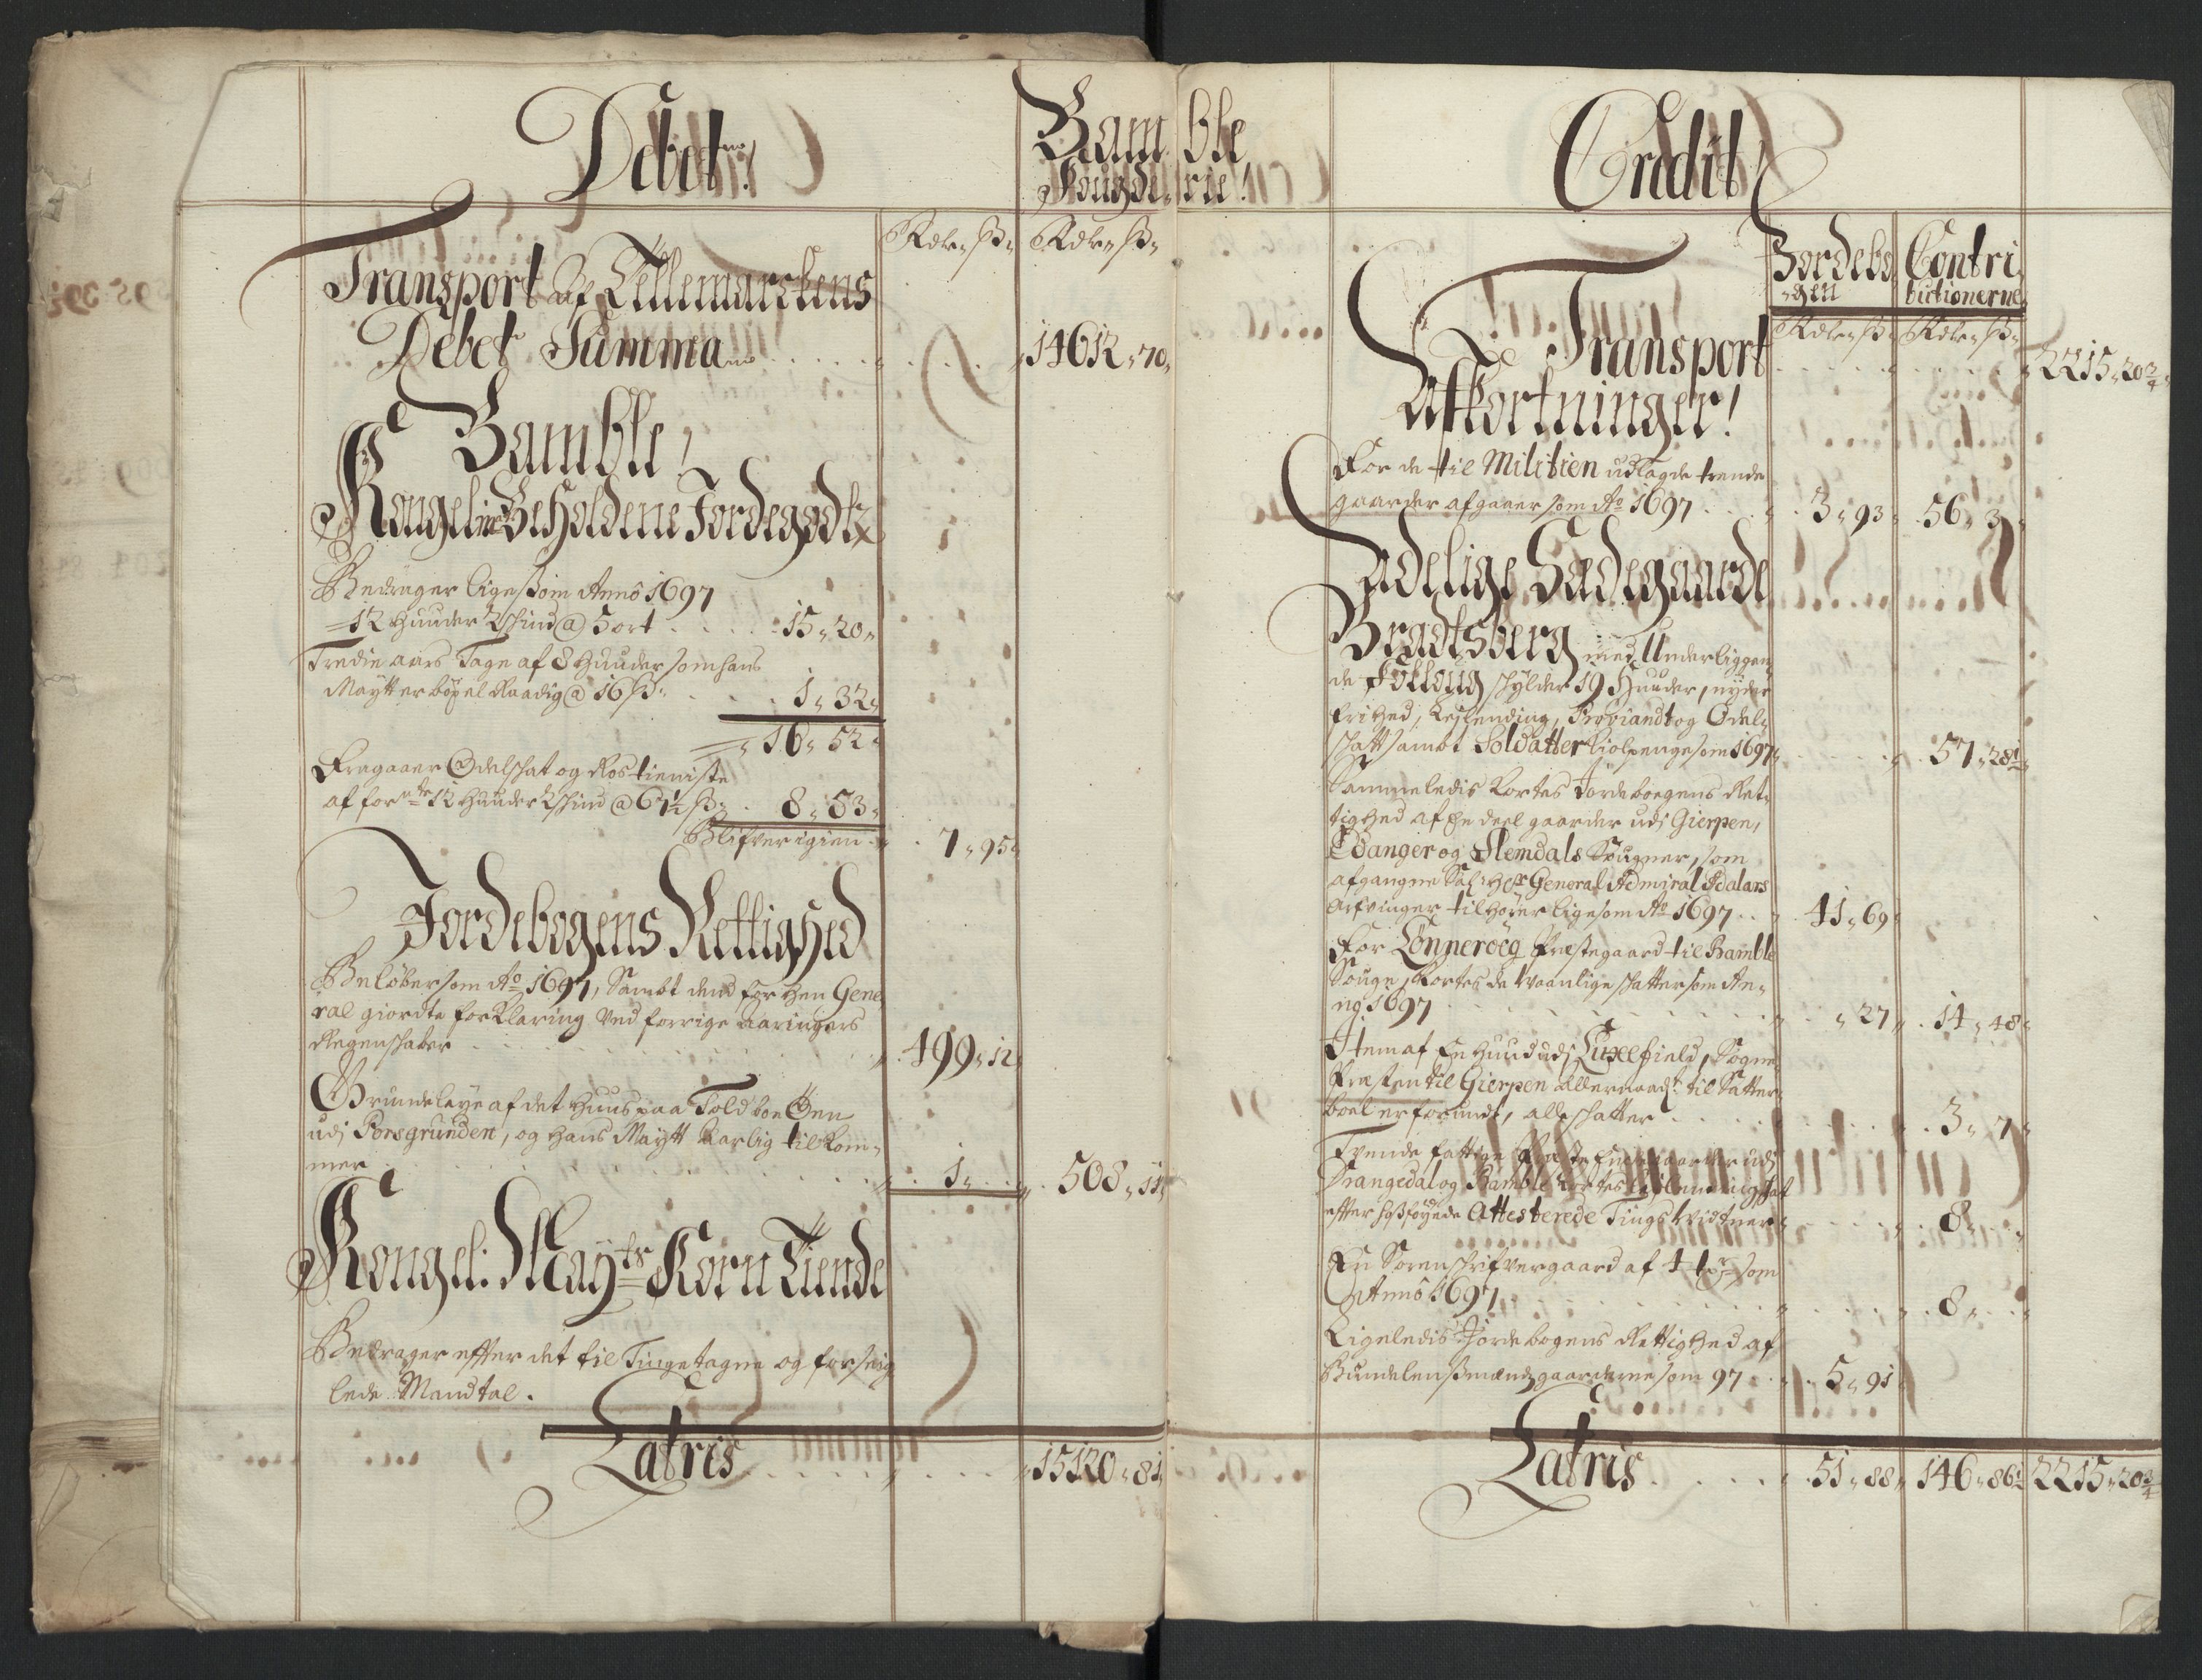 Debet!
Bamble
Fougderie!
Rdr. ß. Rdr. ß.
Transport af Tellemarckens
Debet Summa 14612 70
Bamble,
Kongel: Beholdene Jordegodtz
Bedrager ligesom Anno 1697
12 Huuder Schind @ 5 ort 15 20
Tredie aars Tage af 8 Huuder som hans
Maytt er böxel Raadig @ 16 ß. 1 32
16 52
Fragaaer Odelschat og Rostieniste
af forne 12 Huuder 2 schind @ 67½ ß. 8 53
Blifver igien 7 95
Jordebogens Rettighed
Beløber som Ao 1697, Sambt dend for hen Gene
ral giordte forklaring ved forrige aaringers
Regenschaber 499 12
Grundeleye af det Huus paa Toldboe Öen
udj Porsgrunden, og hans Maytt aarlig tilkom-
mer 1 508 11
Kongel: Mayts Korn Tiende
Bedrager effter det til Tinge tagne og forseig
lede Mandtal.
Latris 15120 81
Credit
Jordebo Contri
gen butionerne
Rdr. ß. Rdr. ß.
Transport 2215 20¾
Afkortninger!
For de til Militien udlagde trende
gaarder afgaaer som Ao 1697 3 93 56 3
Adelige Sædegaarde
Bradtsberg med Underliggen
de Follong schylder 19 Huuder, nyder
frihed, Leylending, Proviandt og Odel-
schatt sambt Soldatter hiolpenge som 1697 57 28½
Sammeledis Kortes Jordeboegens Ret-
tighed af En deel gaarder udj Gierpen,
Edanger og Slemdals Sougner, som
afgangne Sal: Hr General Admiral Adalars
Arfvinger tilhører ligesom Ao 1697 41 69
For Lönneroeg Præstegaard til Bamble
Sougn, Kortes de vaanlige schatter som An-
no 1697 27 14 48
Item af En Huud udj Luxefield, Sogne
Præsten til Gierpen allernaadt til Sætter
boel er forundt, alle schatter 3 7
Trende fattige Præste Enchegaarder udj
Drangedal og Bamble Kortes Leylendingschat
effter hosføyede Attesterede Tings Vidtner 8
En Sorenschrifvergaard af 4 tdr som
Anno 1697 8
Ligeledis Jordebogens Rettighed af
Bundelenßmændz gaarderne som 97 5 91
Latris 51 88 146 86½ 2215 20¾